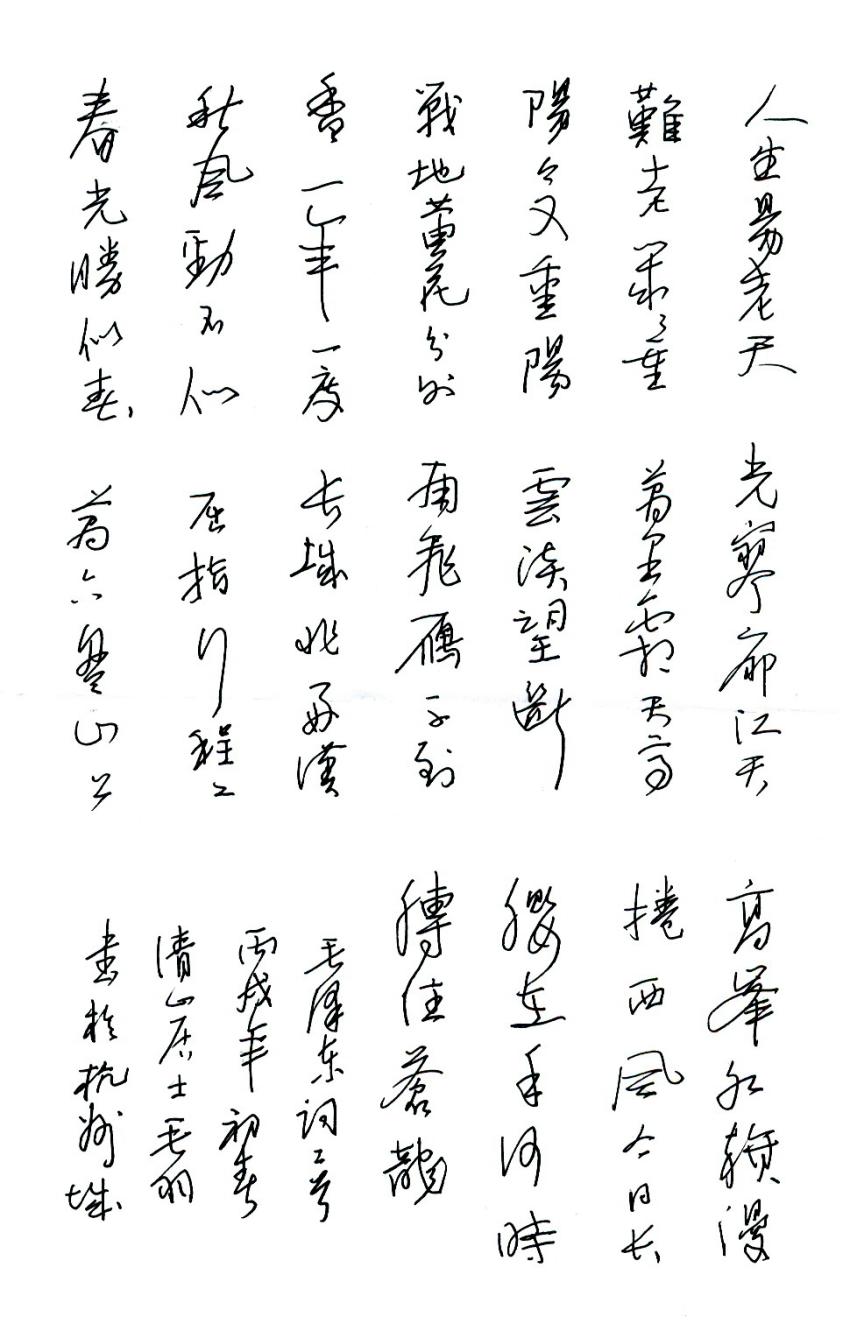 人生易老天
難老歲々重
陽今又重陽
戰地黃花分外
香一年一度
秋風勁不似
春光勝似春
光寥廓江天
萬里霜天高
雲淡望斷
南飛雁不到
长城非好漢
屈指行程二
萬六盤山上
高峯紅旗漫
捲西風今日长
纓在手何時
縛住蒼龍
毛澤东词二首
丙戌年初春
清山居士毛羽
書於杭州城